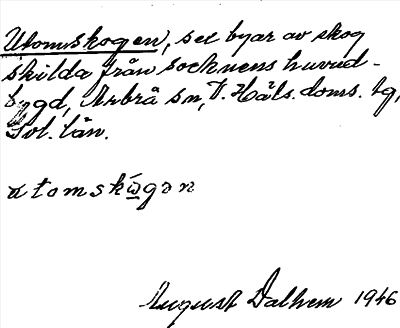 Utomskogen, sex byar av skog
skilda från socknens huvud-
bygd, Arbrå sn, V. Häls. doms. tg,
Gvl. län.
utomskògən
August Dalhem 1946